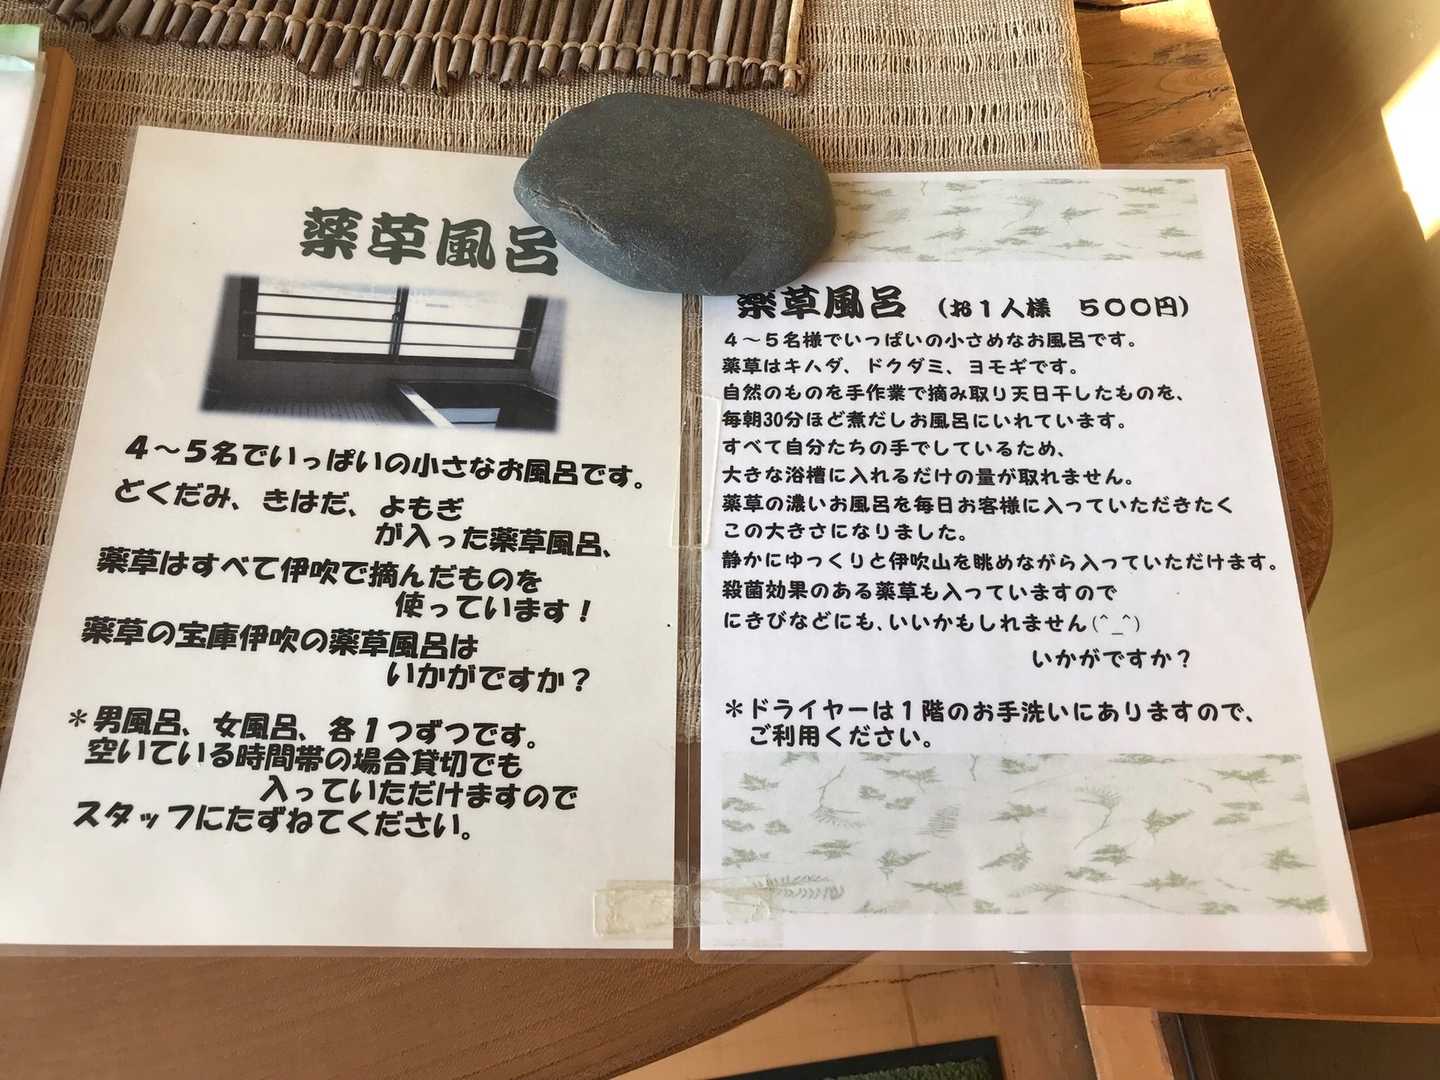 薬草風呂
4～5名でいっぱいの小さなお風呂です。
どくだみ、きはだ、よもぎ
が入った薬草風呂、
薬草はすべて伊吹で摘んだものを
使っています！
薬草の宝庫伊吹の薬草風呂は
いかがですか？
＊男風呂、女風呂、各1つずつです。
空いている時間帯の場合貸切でも
入っていただけますので
スタッフにたずねてください。
薬草風呂 （お1人様 500円）
4～5名様でいっぱいの小さめなお風呂です。
薬草はキハダ、ドクダミ、ヨモギです。
自然のものを手作業で摘み取り天日干したものを、
毎朝30分ほど煮だしお風呂にいれています。
すべて自分たちの手でしているため、
大きな浴槽に入れるだけの量が取れません。
薬草の濃いお風呂を毎日お客様に入っていただきたく
この大きさになりました。
静かにゆっくりと伊吹山を眺めながら入っていただけます。
殺菌効果のある薬草も入っていますので
にきびなどにも、いいかもしれません(^_^)
いかがですか？
＊ドライヤーは1階のお手洗いにありますので、
ご利用ください。